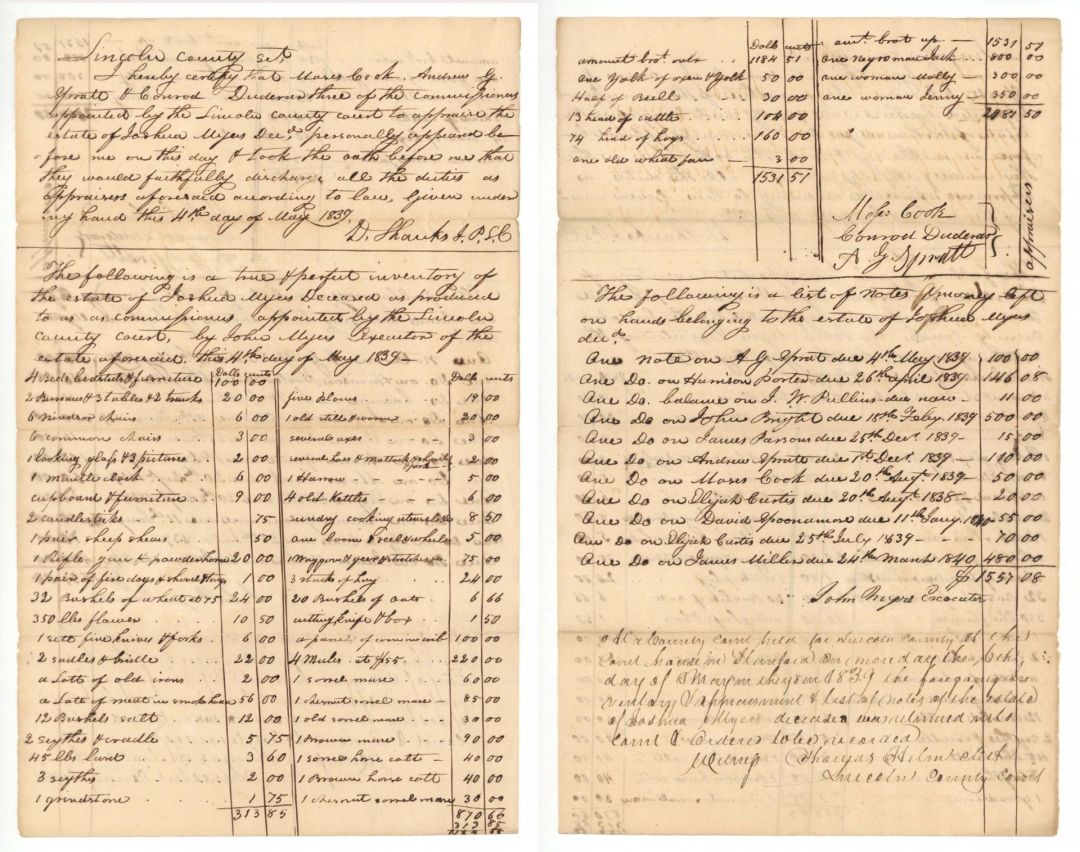 Lincoln county sct
I hereby certify that Moses Cook, Andrew G.
Spratt & Conrod Duderar three of the commissioners
appointed by the Lincoln county court to appraise the
estate of Joshua Myers Decd. personally appeared be
fore me on this day & took the oath before me that
they would faithfully discharge all the duties as
appraisers aforesaid according to law, Given under
my hand this 4th day of May 1839.
D. Shanks J.P.L.C
The following is a true & perfect inventory of
the estate of Joshua Myers Deceased as produced
to us as commissioners appointed by the Lincoln
county court, by John Myers Executor of the
estate aforesaid, this 4th day of May 1839 -
Dolls cents
4 Beds bedsteads & furniture 100 00
2 Bureaus & 3 tables & 2 trunks 20 00
6 Windsor chairs 6 00
6 common chairs 3 00
1 looking glass & 3 pictures 2 00
1 mantle clock 6 00
cupboard & furniture 9 00
2 candlesticks 75
1 pair sheep shears 50
1 Rifle gun & powderhorn 20 00
1 pair of fire dogs & shovel & tongs 1 00
32 Bushels of wheat at 75 24 00
350 lbs flower 10 50
1 sett fine knives & forks 6 00
2 sadles & bridle 22 00
a Lott of old irons 2 00
a Lott of meat in smokehouse 56 00
12 Bushels salt 12 00
2 scythes & cradle 5 75
45 lbs lard 3 60
3 scythes 2 00
1 grindstone 1 75
313 85
Dolls cents
five plows 19 00
1 old still & worm 20 00
several axes 3 00
several hoes & mattock & fork 2 00
1 Harrow 5 00
4 old kettles 6 00
sundry cooking utensils 8 50
one loom & reel & wheels 5 00
1 Waggon & gear & stretchers 75 00
3 stacks of hay 24 00
20 Bushels of oats 6 66
cutting knife & box 1 50
a parcel of corn in crib 100 00
4 Mules at $55 220 00
1 sorrel mare 60 00
1 chesnut sorrel mare 85 00
1 old sorrel mare 30 00
1 Brown mare 90 00
1 sorrel horse colt 40 00
1 Brown horse colt 40 00
1 chesnut sorrel mare 30 00
870 66
313 85
Dolls cents
amount brot. over 1184 51
one Yolk of oxen & Yolk 50 00
Half of Bull 30 00
13 head of cattle 104 00
74 head of hogs 160 00
one old wheat fan 3 00
1531 51
amt. brot up 1531 51
one negro man Jack 800 00
one woman Molly 300 00
one woman Jenny 350 00
2981 50
Moses Cook
Conrod Duderar
A. G. Spratt
appraisers
The following is a list of notes & money left
on hands belonging to the estate of Joshua Myers
decd.
One note on A G Spratt due 4th May 1839 100 00
One Do. on Harrison Porter due 26th april 1839 146 08
One Do. balance on J. W. Pullins due now 11 00
One Do on John Bright due 18th Feby. 1839 500 00
One Do on James Parsons due 25th Decr. 1839 15 00
One Do on Andrew Spratt due 1st Decr. 1839 110 00
One Do on Moses Cook due 20th Augt. 1839 50 00
One Do on Elijah Curtis due 20th Augt. 1838 20 00
One Do on David Spoonamore due 11th Jany. 1840 55 00
One Do on Elijah Curtis due 25th July 1839 70 00
One Do on James Miller due 24th March 1840 480 00
$ 1557 08
John Myers Executer
At a County court held for Lincoln county at the
court house in Stanford on monday the 6th
day of May in the year 1839 the foregoing in
ventory & appraisment & list of notes of the estate
of Joshua Myers deceased was returned into
court & ordered to be recorded
Thomas Helm clerk
Lincoln County Court